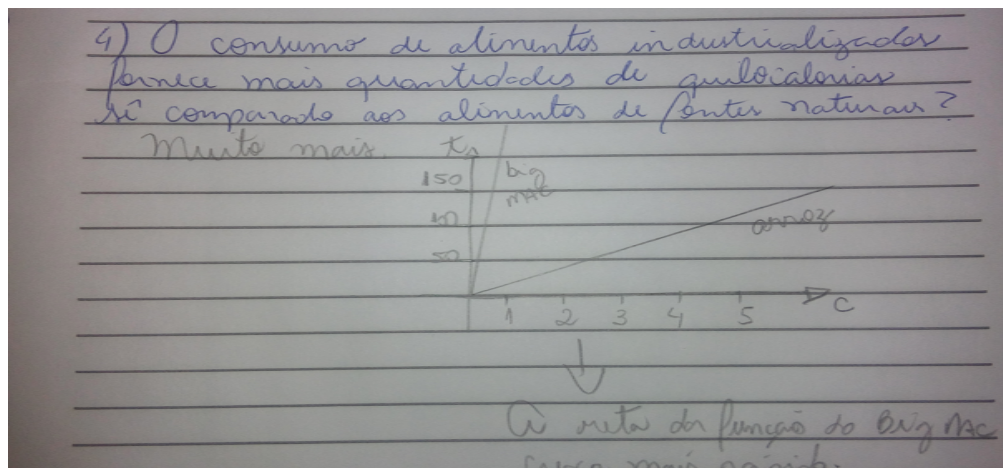 4) O consumo de alimentos industrializados
fornece mais quantidades de quilocalorias
se comparado aos alimentos de fontes naturais?
Muito mais.
K
150
big
MAC
100
arroz
50
1 2 3 4 5 C
A reta da função do Big MAC
cresce mais